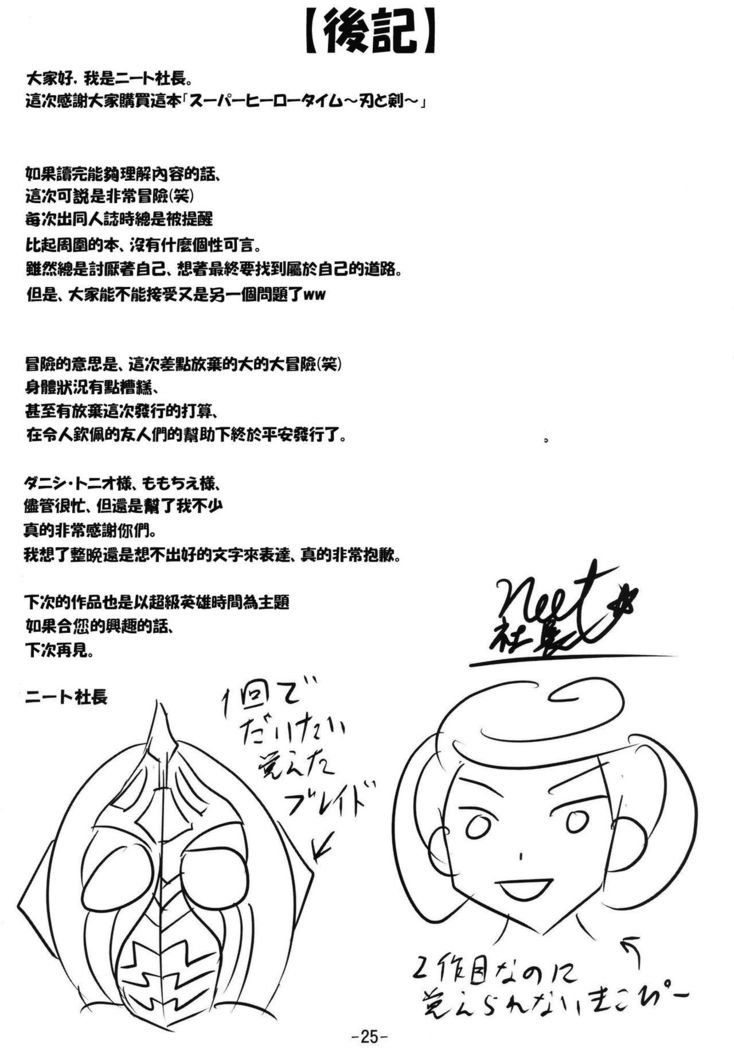 【後記】
大家好，我是ニート社長。
這次感謝大家購買這本「スーパーヒーロータイム～刃と剣～」
如果讀完能夠理解內容的話、
這次可說是非常冒險(笑)
每次出同人誌時總是被提醒
比起周圍的本、沒有什麼個性可言。
雖然總是討厭著自己、想著最終要找到屬於自己的道路。
但是、大家能不能接受又是另一個問題了ww
冒險的意思是、這次差點放棄的大的大冒險(笑)
身體狀況有點糟糕、
甚至有放棄這次發行的打算、
在令人欽佩的友人們的幫助下終於平安發行了。
。
ダニシ・トニオ様、ももちえ様、
儘管很忙、但還是幫了我不少
真的非常感謝你們。
我想了整晚還是想不出好的文字來表達、真的非常抱歉。
下次的作品也是以超級英雄時間為主題
如果合您的興趣的話、
下次再見。
ニート社長
neet
社長
1回で
だいたい
覚えた
ブレイド
2作目なのに
覚えられないまこぴー
-25-